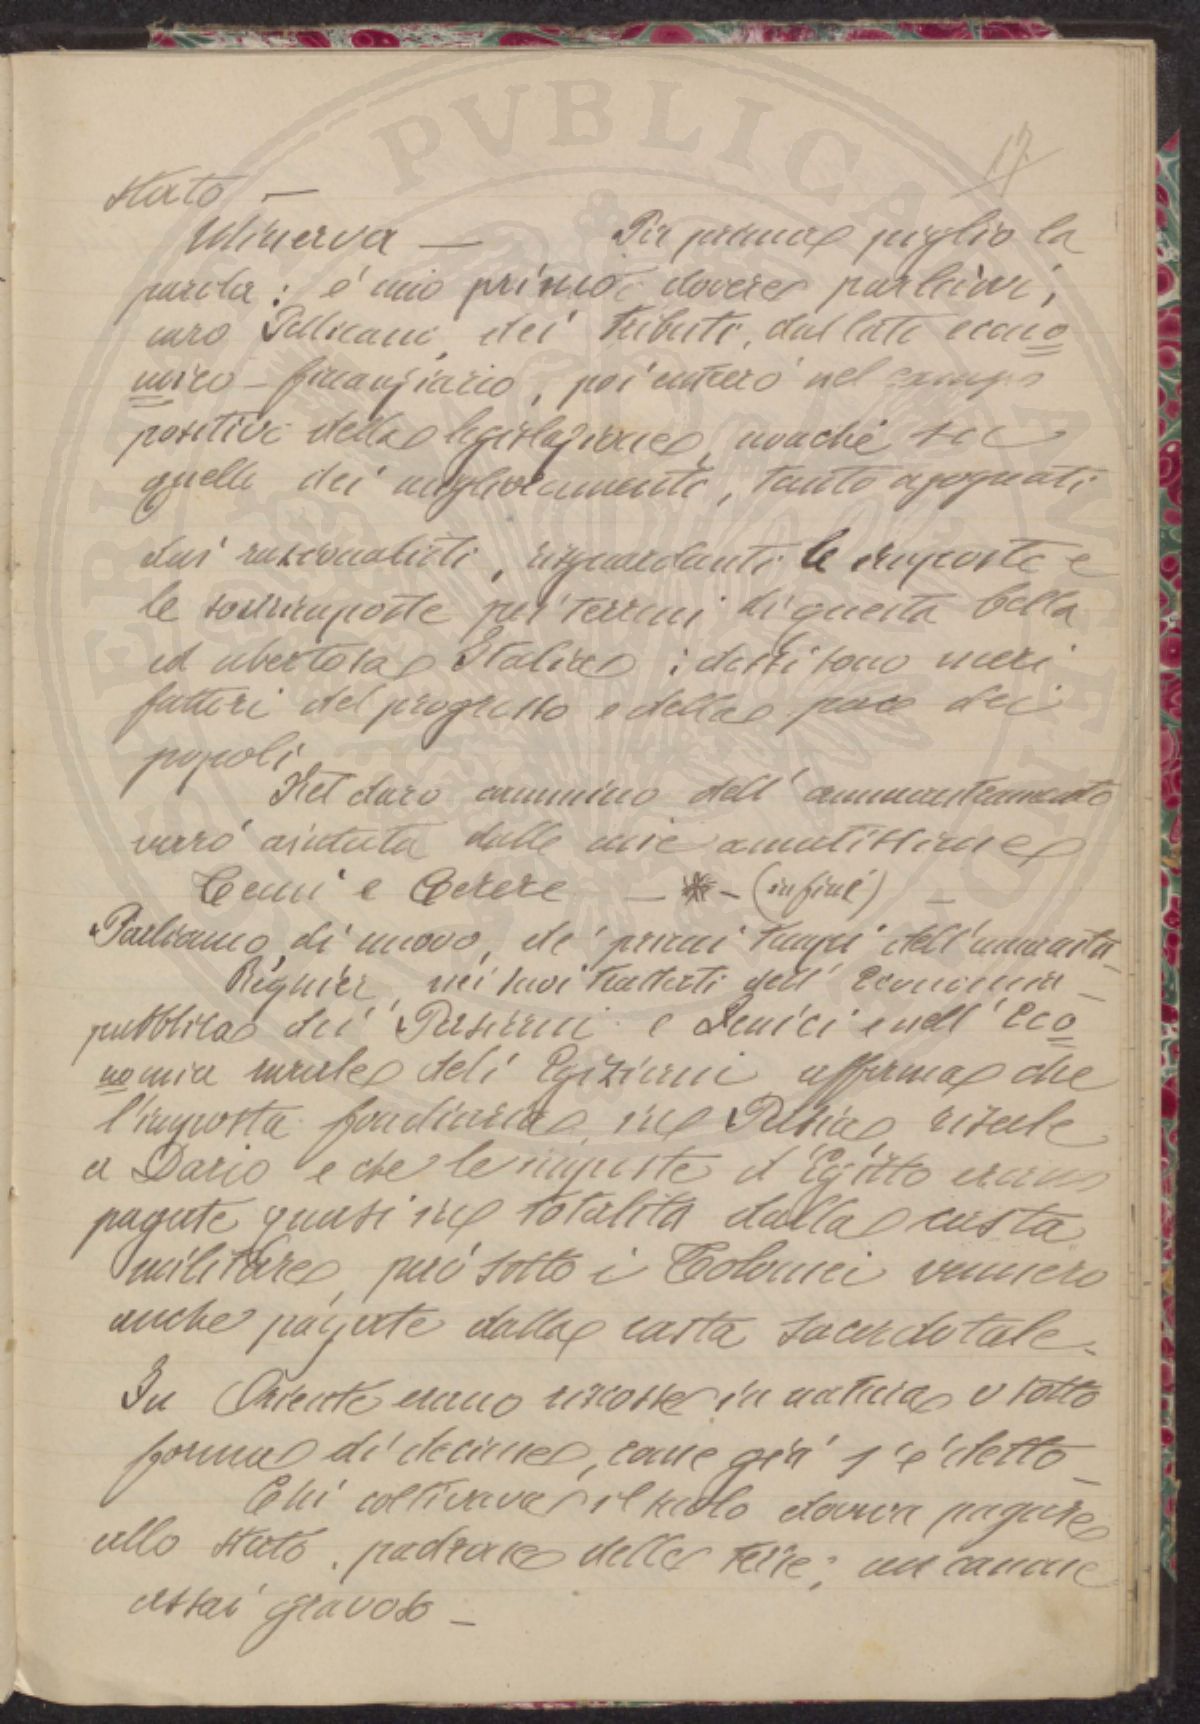 17
stato —
Minerva — Per prima piglio la
parola: è mio primo dovere parlarvi,
caro Pellicani, dei tributi, dal lato econo
mico - finanziario, poi entrerò nel campo
positivo della legislazione, nonchè su
quello dei miglioramenti, tanto agognati
dai razionalisti, risguardanti le imposte e
le sovrimposte pei terreni di questa bella
ed ubertosa Italia: dessi sono meri
fattori del progresso e della pace dei
popoli.
Nel duro cammino dell'ammaestramento
verrò aiutata dalle mie amatissime
Temi e Cerere — * - (infine) —
Parliamo, di nuovo, de' primi tempi dell'umanità_
Régnier, nei suoi trattati dell'Economia
pubblica dei Persiani e Fenici e nell'Eco
nomia rurale deli Egiziani afferma che
l'imposta fondiaria in Persia risale
a Dario e che le imposte d'Egitto erano
pagate quasi in totalità dalla casta
militare, però sotto i Tolomei vennero
anche pagate dalla casta sacerdotale.
In Oriente erano riscosse in natura o sotto
forma di decime, come già s'è detto_
Chi coltivava il suolo doveva pagare
allo Stato, padrone delle terre, un canone
assai gravoso —
PUBLICA